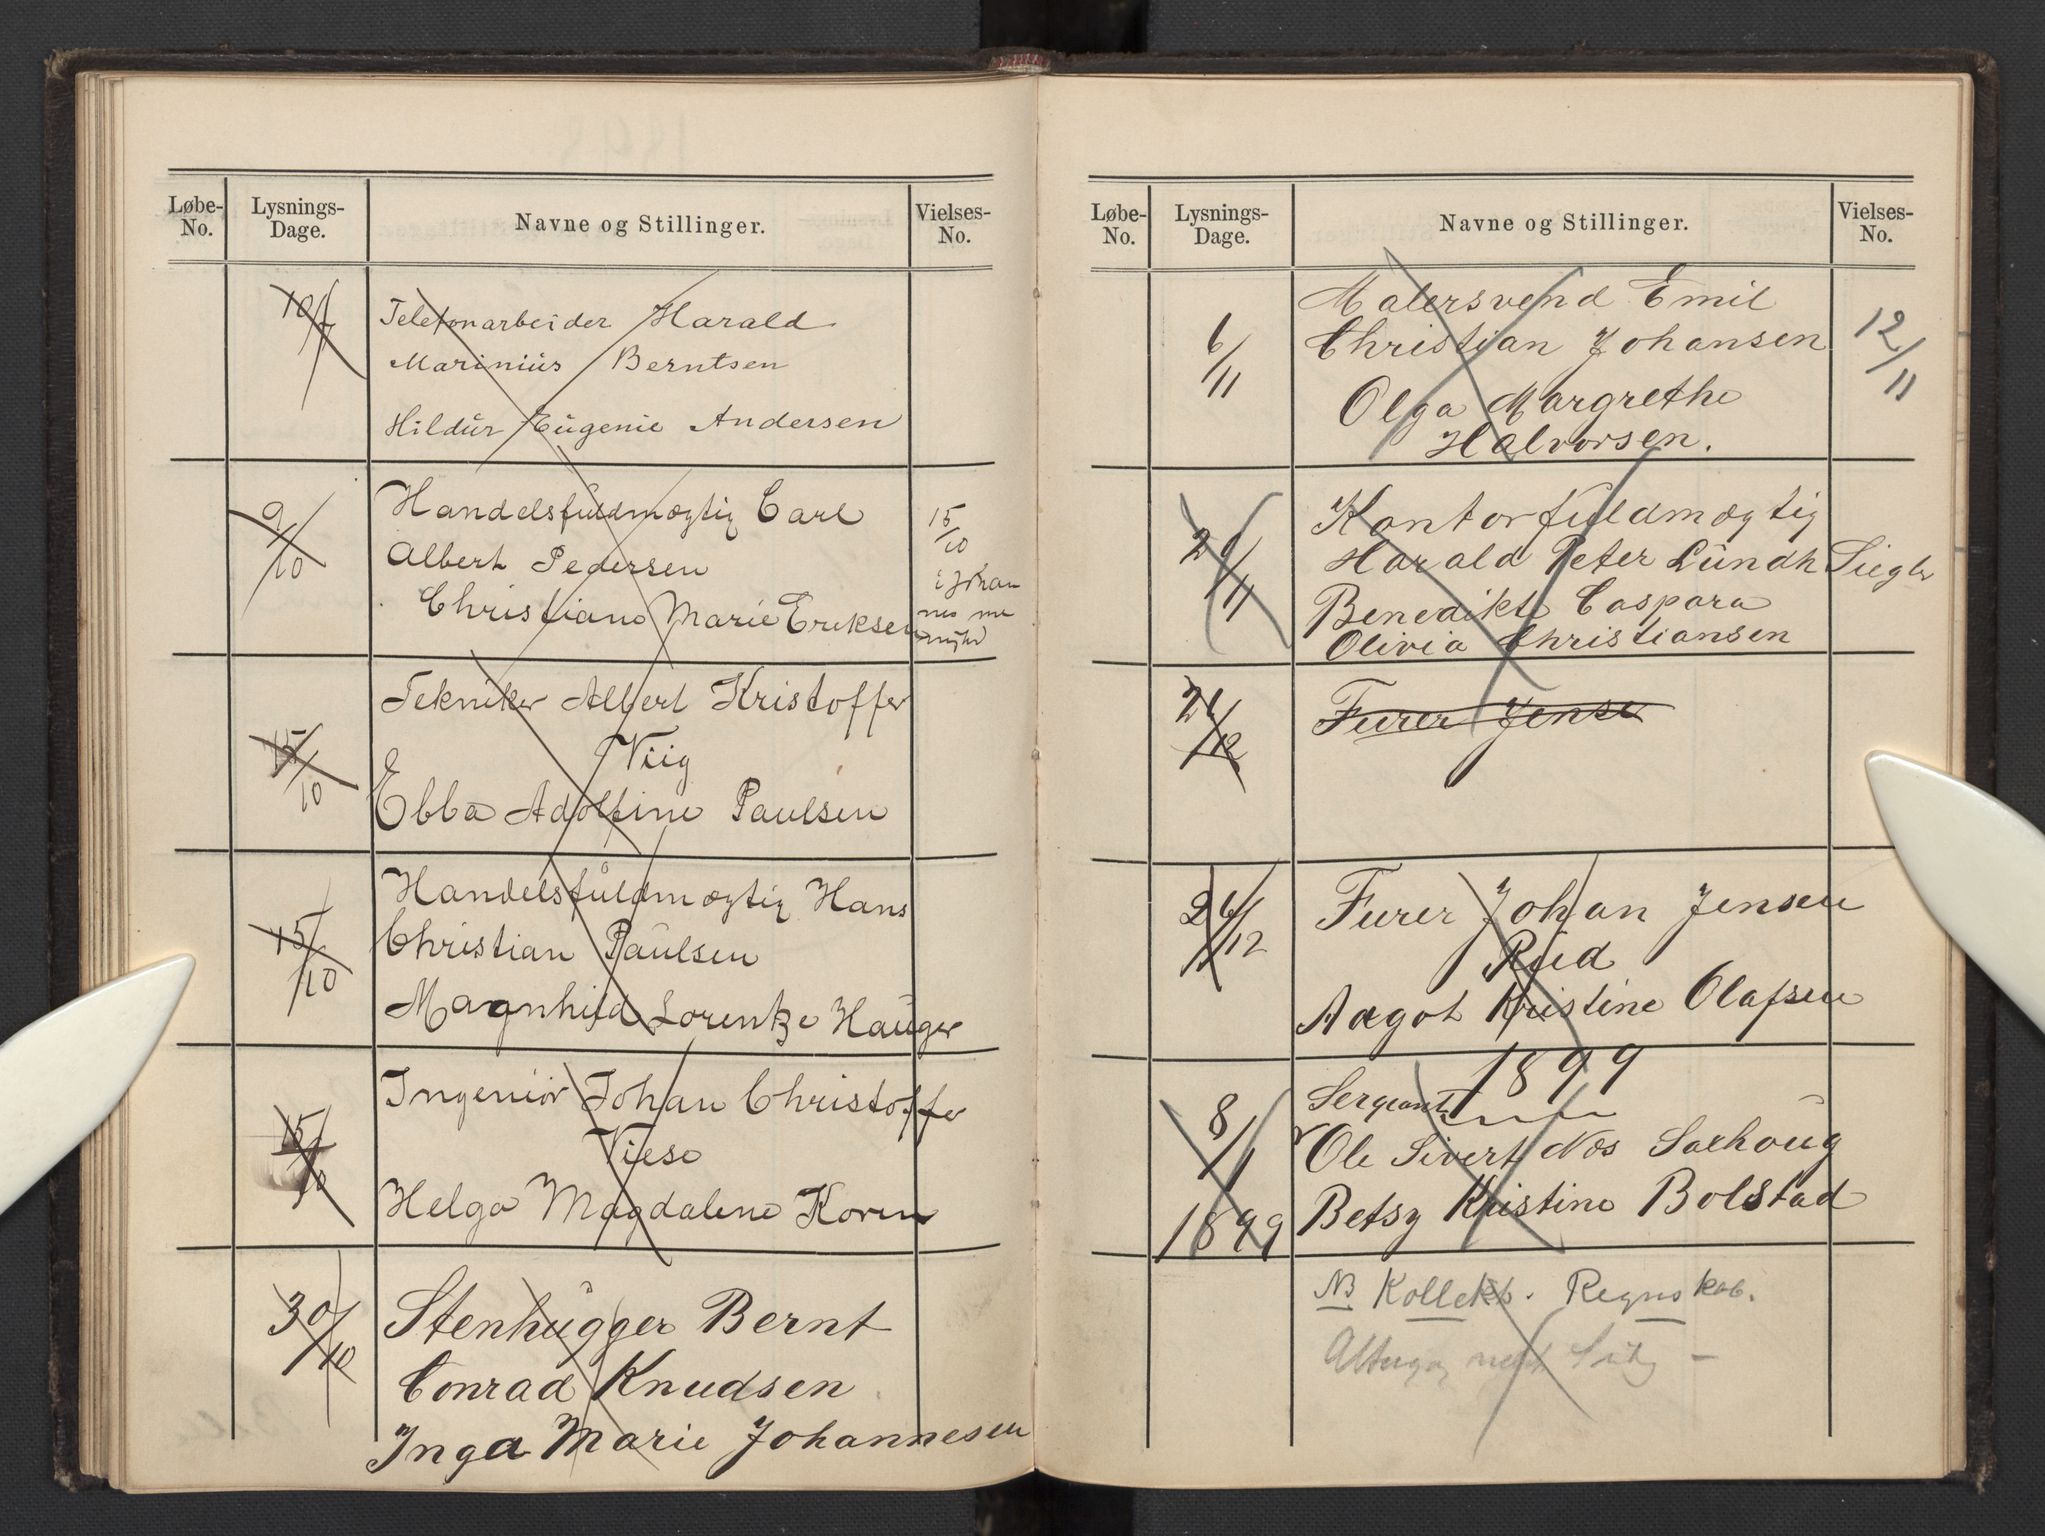 Løbe-No. Lysnings-Dage. Navne og Stillinger. Vielses-No.
Telefonarbeider Harald
Marinius Berntsen
Hildur Eugenie Andersen
9/10 Handelsfuldmægtig Carl 15/10
Albert Pedersen
Christiane Marie Eriksen
15/10 Tekniker Albert Kristoffer
Viig
Ebba Adolfine Paulsen
15/10 Handelsfuldmægtig Hans
Christian Paulsen
Magnhild Lorentze Hauger
15/10 Ingeniör Johan Christoffer
Viese
Helga Magdalene Koren
30/10 Stenhugger Bernt
Conrad Knudsen
Inga Marie Johannesen
Løbe-No. Lysnings-Dage. Navne og Stillinger. Vielses-No.
6/11 Malersvend Emil 12/11
Christian Johansen
Olga Margrethe
Halvorsen.
Kontorfuldmægtig
Harald Peter Lundh
Benedikte Caspara
Olivia Christiansen
26/12 Furer Jense
26/12 Furer Johan Jensen
Rud
Aagot Kristine Olafsen
1899
8/1 1899 Sergeant
Ole Sivert Næs Saxhoug
Betsy Kristine Bolstad
NB Kollekt. Regnskab.